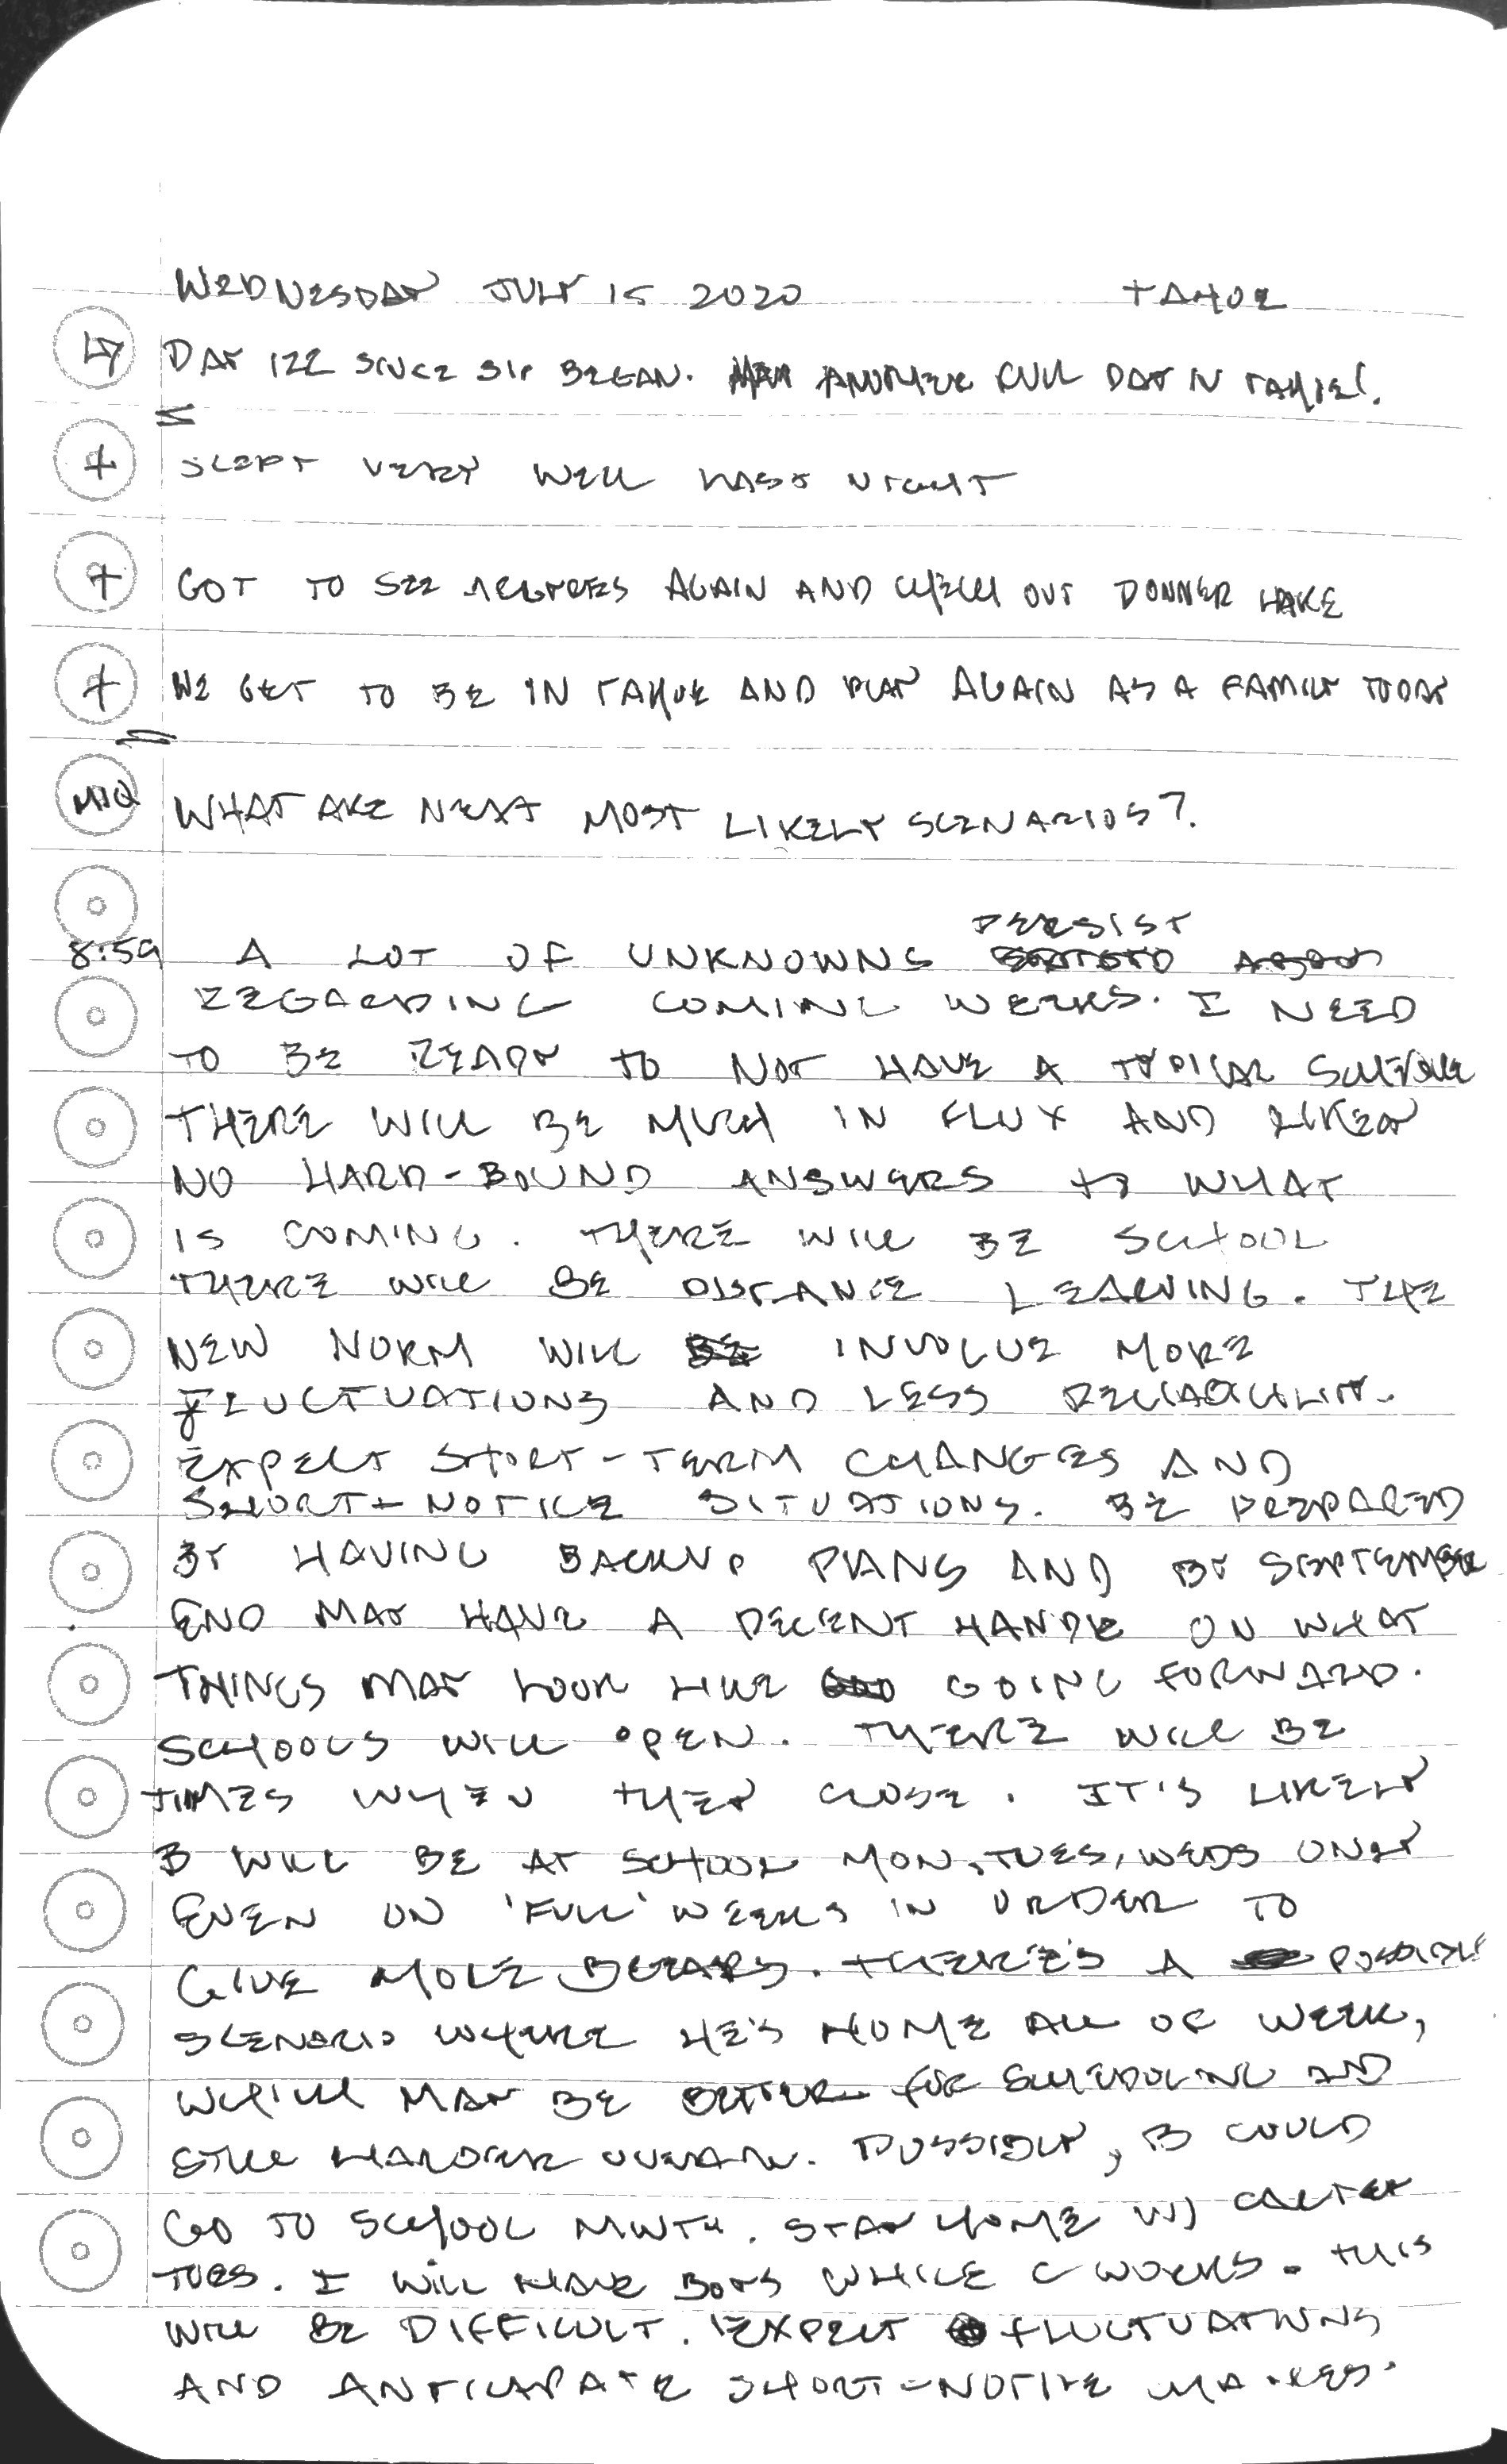 WEDNESDAY JULY 15 2020 TAHOE
DAY 122 SINCE SIP BEGAN. ANOTHER FULL DAY IN TAHOE!
+ SLEPT VERY WELL LAST NIGHT
+ GOT TO SEE AGAIN AND CHECK OUT DONNER LAKE
+ WE GET TO BE IN TAHOE AND PLAY AGAIN AS A FAMILY TODAY
WHAT ARE NEXT MOST LIKELY SCENARIOS?
PERSIST
8:59 A LOT OF UNKNOWNS
REGARDING COMING WEEKS. I NEED
TO BE READY TO NOT HAVE A TYPICAL SCHEDULE
THERE WILL BE MUCH IN FLUX AND LIKELY
NO HARD-BOUND ANSWERS TO WHAT
IS COMING. THERE WILL BE SCHOOL
THERE WILL BE DISTANCE LEARNING. THE
NEW NORM WILL INVOLVE MORE
FLUCTUATIONS AND LESS RELIABILITY.
EXPECT SHORT-TERM CHANGES AND
SHORT-NOTICE SITUATIONS. BE PREPARED
BY HAVING BACKUP PLANS AND BY SEPTEMBER
END MAY HAVE A DECENT HANDLE ON WHAT
THINGS MAY LOOK LIKE GOING FORWARD.
SCHOOLS WILL OPEN. THERE WILL BE
TIMES WHEN THEY CLOSE. IT'S LIKELY
B WILL BE AT SCHOOL MON, TUES, WEDS ONLY
EVEN ON 'FULL' WEEKS IN ORDER TO
GIVE MORE BREAKS. THERE'S A POSSIBLE
SCENARIO WHERE HE'S HOME ALL OF WEEK,
WHICH MAY BE BETTER FOR SCHEDULING AND
STILL HARDER OVERALL. POSSIBLY, B COULD
GO TO SCHOOL MWTH. STAY HOME W/ CARTER
TUES. I WILL HAVE BOYS WHILE C WORKS. THIS
WILL BE DIFFICULT. EXPECT FLUCTUATIONS
AND ANTICIPATE SHORT-NOTICE